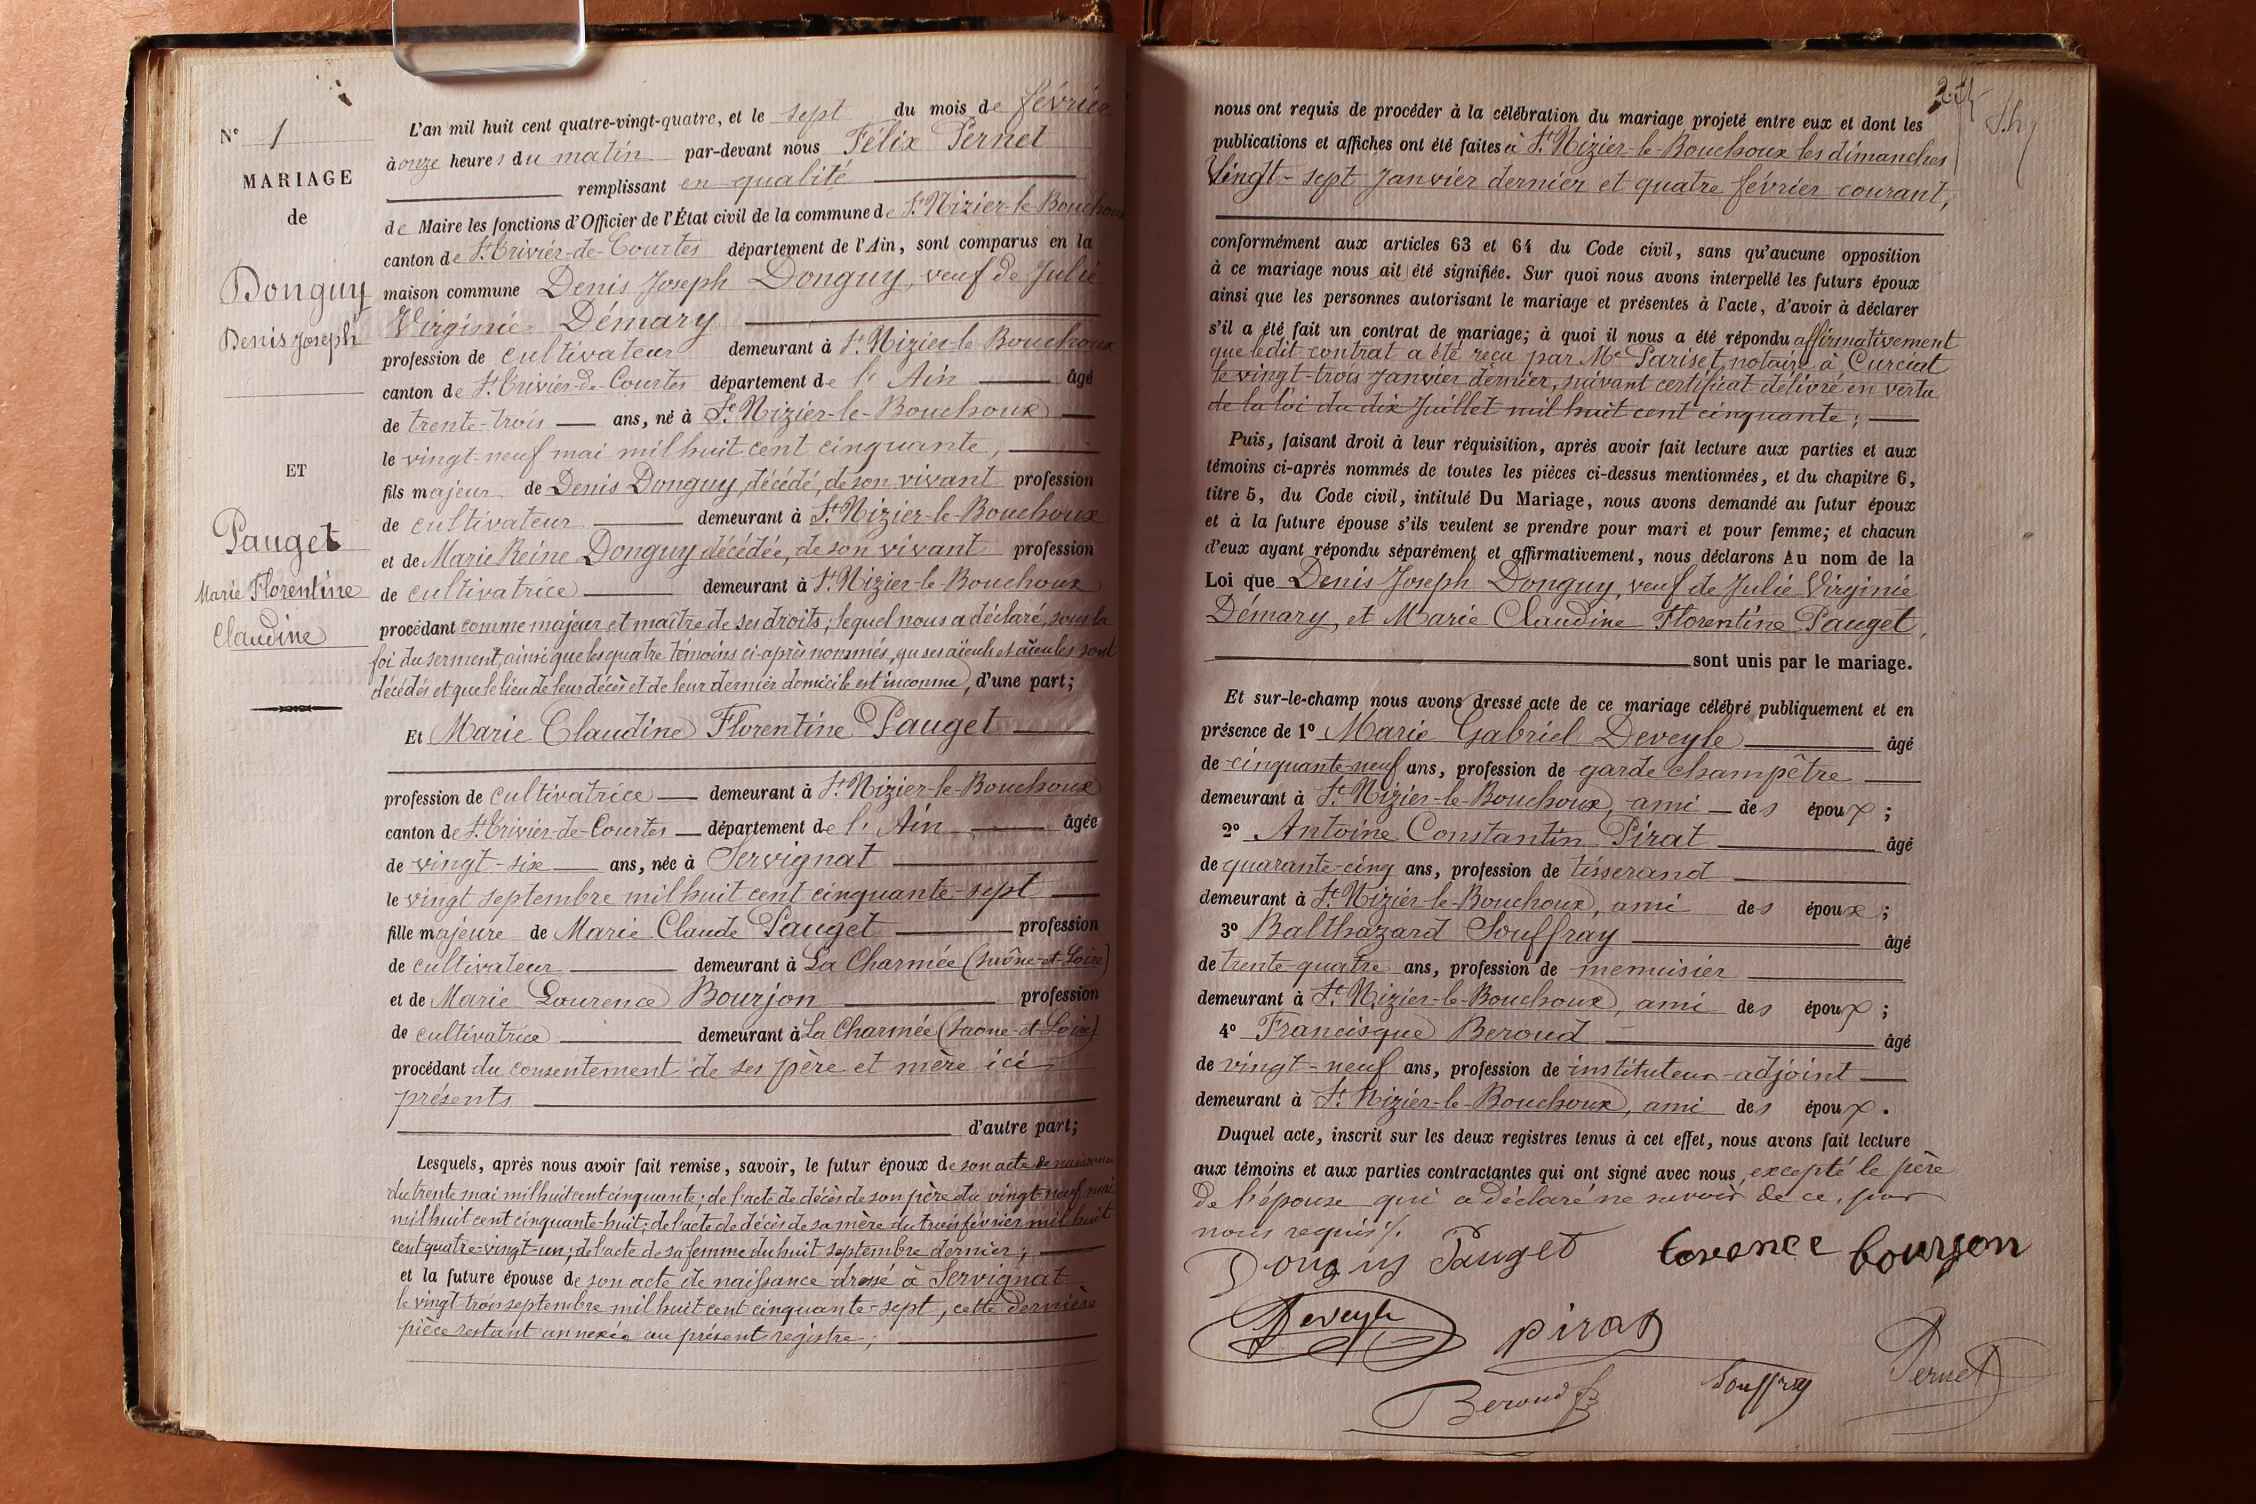 N° 1
MARIAGE
de
Donguy
Denis Joseph
ET
Pauget
Marie Florentine
Claudine
L'an mil huit cent quatre-vingt-quatre, et le sept du mois de février
à onze heures du matin par-devant nous Félix Pernet
remplissant en qualité
de Maire les fonctions d'Officier de l'État civil de la commune de St Nizier-le-Bouchoux
canton de St Trivier-de-Courtes département de l'Ain, sont comparus en la
maison commune Denis Joseph Donguy, veuf de Julie
Virginie Démary
profession de cultivateur demeurant à St Nizier-le-Bouchoux
canton de St Trivier-de-Courtes département de l'Ain âgé
de trente-trois ans, né à St Nizier-le-Bouchoux
le vingt-neuf mai mil huit cent cinquante,
fils majeur de Denis Donguy, décédé, de son vivant profession
de cultivateur demeurant à St Nizier-le-Bouchoux
et de Marie Reine Donguy décédée, de son vivant profession
de cultivatrice demeurant à St Nizier-le-Bouchoux
procédant comme majeur et maître de ses droits; lequel nous a déclaré, sous la
foi du serment, ainsi que les quatre témoins ci-après nommés, qu ses aïeuls et aïeules sont
décédés et que le lieu de leur décès et de leur dernier domicile est inconnu, d'une part;
Et Marie Claudine Florentine Pauget
profession de cultivatrice demeurant à St Nizier-le-Bouchoux
canton de St Trivier-de-Courtes département de l'Ain âgée
de vingt-six ans, née à Servignat
le vingt septembre mil huit cent cinquante-sept
fille majeure de Marie Claude Pauget profession
de cultivateur demeurant à La Charmée (Saône-et-Loire)
et de Marie Laurence Bourjon profession
de cultivatrice demeurant à La Charmée (Saone-et-Loire)
procédant du consentement de ses père et mère ici
présents
d'autre part;
Lesquels, après nous avoir fait remise, savoir, le futur époux de son acte de naissance
du trente mai mil huit cent cinquante; de l'acte de décès de son père du vingt-neuf mai
mil huit cent cinquante-huit; de l'acte de décès de sa mère du trois février mil huit
cent quatre-vingt-un; de l'acte de sa femme du huit septembre dernier;
et la future épouse de son acte de naissance dressé à Servignat
le vingt-trois septembre mil huit cent cinquante-sept, cette dernière
pièce restant annexée au présent registre;
nous ont requis de procéder à la célébration du mariage projeté entre eux et dont les
publications et affiches ont été faites à St Nizier-le-Bouchoux les dimanches
Vingt-sept Janvier dernier et quatre février courant,
conformément aux articles 63 et 64 du Code civil, sans qu'aucune opposition
à ce mariage nous ait été signifiée. Sur quoi nous avons interpellé les futurs époux
ainsi que les personnes autorisant le mariage et présentes à l'acte, d'avoir à déclarer
s'il a été fait un contrat de mariage; à quoi il nous a été répondu affirmativement
que ledit contrat a été reçu par Me Pariset, notaire à Curciat
le vingt-trois Janvier dernier, suivant certificat délivré en vertu
de la loi du dix Juillet mil huit cent cinquante;
Puis, faisant droit à leur réquisition, après avoir fait lecture aux parties et aux
témoins ci-après nommés de toutes les pièces ci-dessus mentionnées, et du chapitre 6,
titre 5, du Code civil, intitulé Du Mariage, nous avons demandé au futur époux
et à la future épouse s'ils veulent se prendre pour mari et pour femme; et chacun
d'eux ayant répondu séparément et affirmativement, nous déclarons Au nom de la
Loi que Denis Joseph Donguy, veuf de Julie Virginie
Démary, et Marie Claudine Florentine Pauget,
sont unis par le mariage.
Et sur-le-champ nous avons dressé acte de ce mariage célébré publiquement et en
présence de 1° Marie Gabriel Deveyle âgé
de cinquante-neuf ans, profession de garde champêtre
demeurant à St Nizier-le-Bouchoux, ami des époux;
2° Antoine Constantin Pirat âgé
de quarante-cinq ans, profession de tisserand
demeurant à St Nizier-le-Bouchoux, ami des époux;
3° Balthazard Souffray âgé
de trente-quatre ans, profession de menuisier
demeurant à St Nizier-le-Bouchoux, ami des époux;
4° Francisque Beroud âgé
de vingt-neuf ans, profession de instituteur-adjoint
demeurant à St Nizier-le-Bouchoux, ami des époux.
Duquel acte, inscrit sur les deux registres tenus à cet effet, nous avons fait lecture
aux témoins et aux parties contractantes qui ont signé avec nous, excepté le père
de l'épouse qui a déclaré ne savoir de ce, par
nous requis./.
Donguy Pauget Lorence bourgon
Deveyle pirat
Beroud fs Souffray Pernet